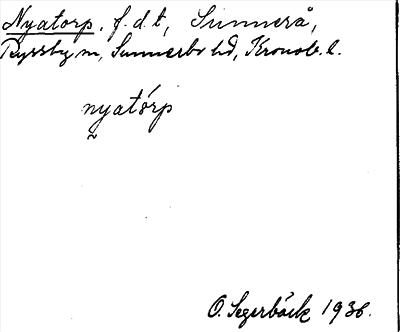 Nyatorp. f.d.t, Sunnerå,
Ryssby sn, Sunnerbo hd, Kronob. l.
nyatórp
O. Segerbäck 1936.